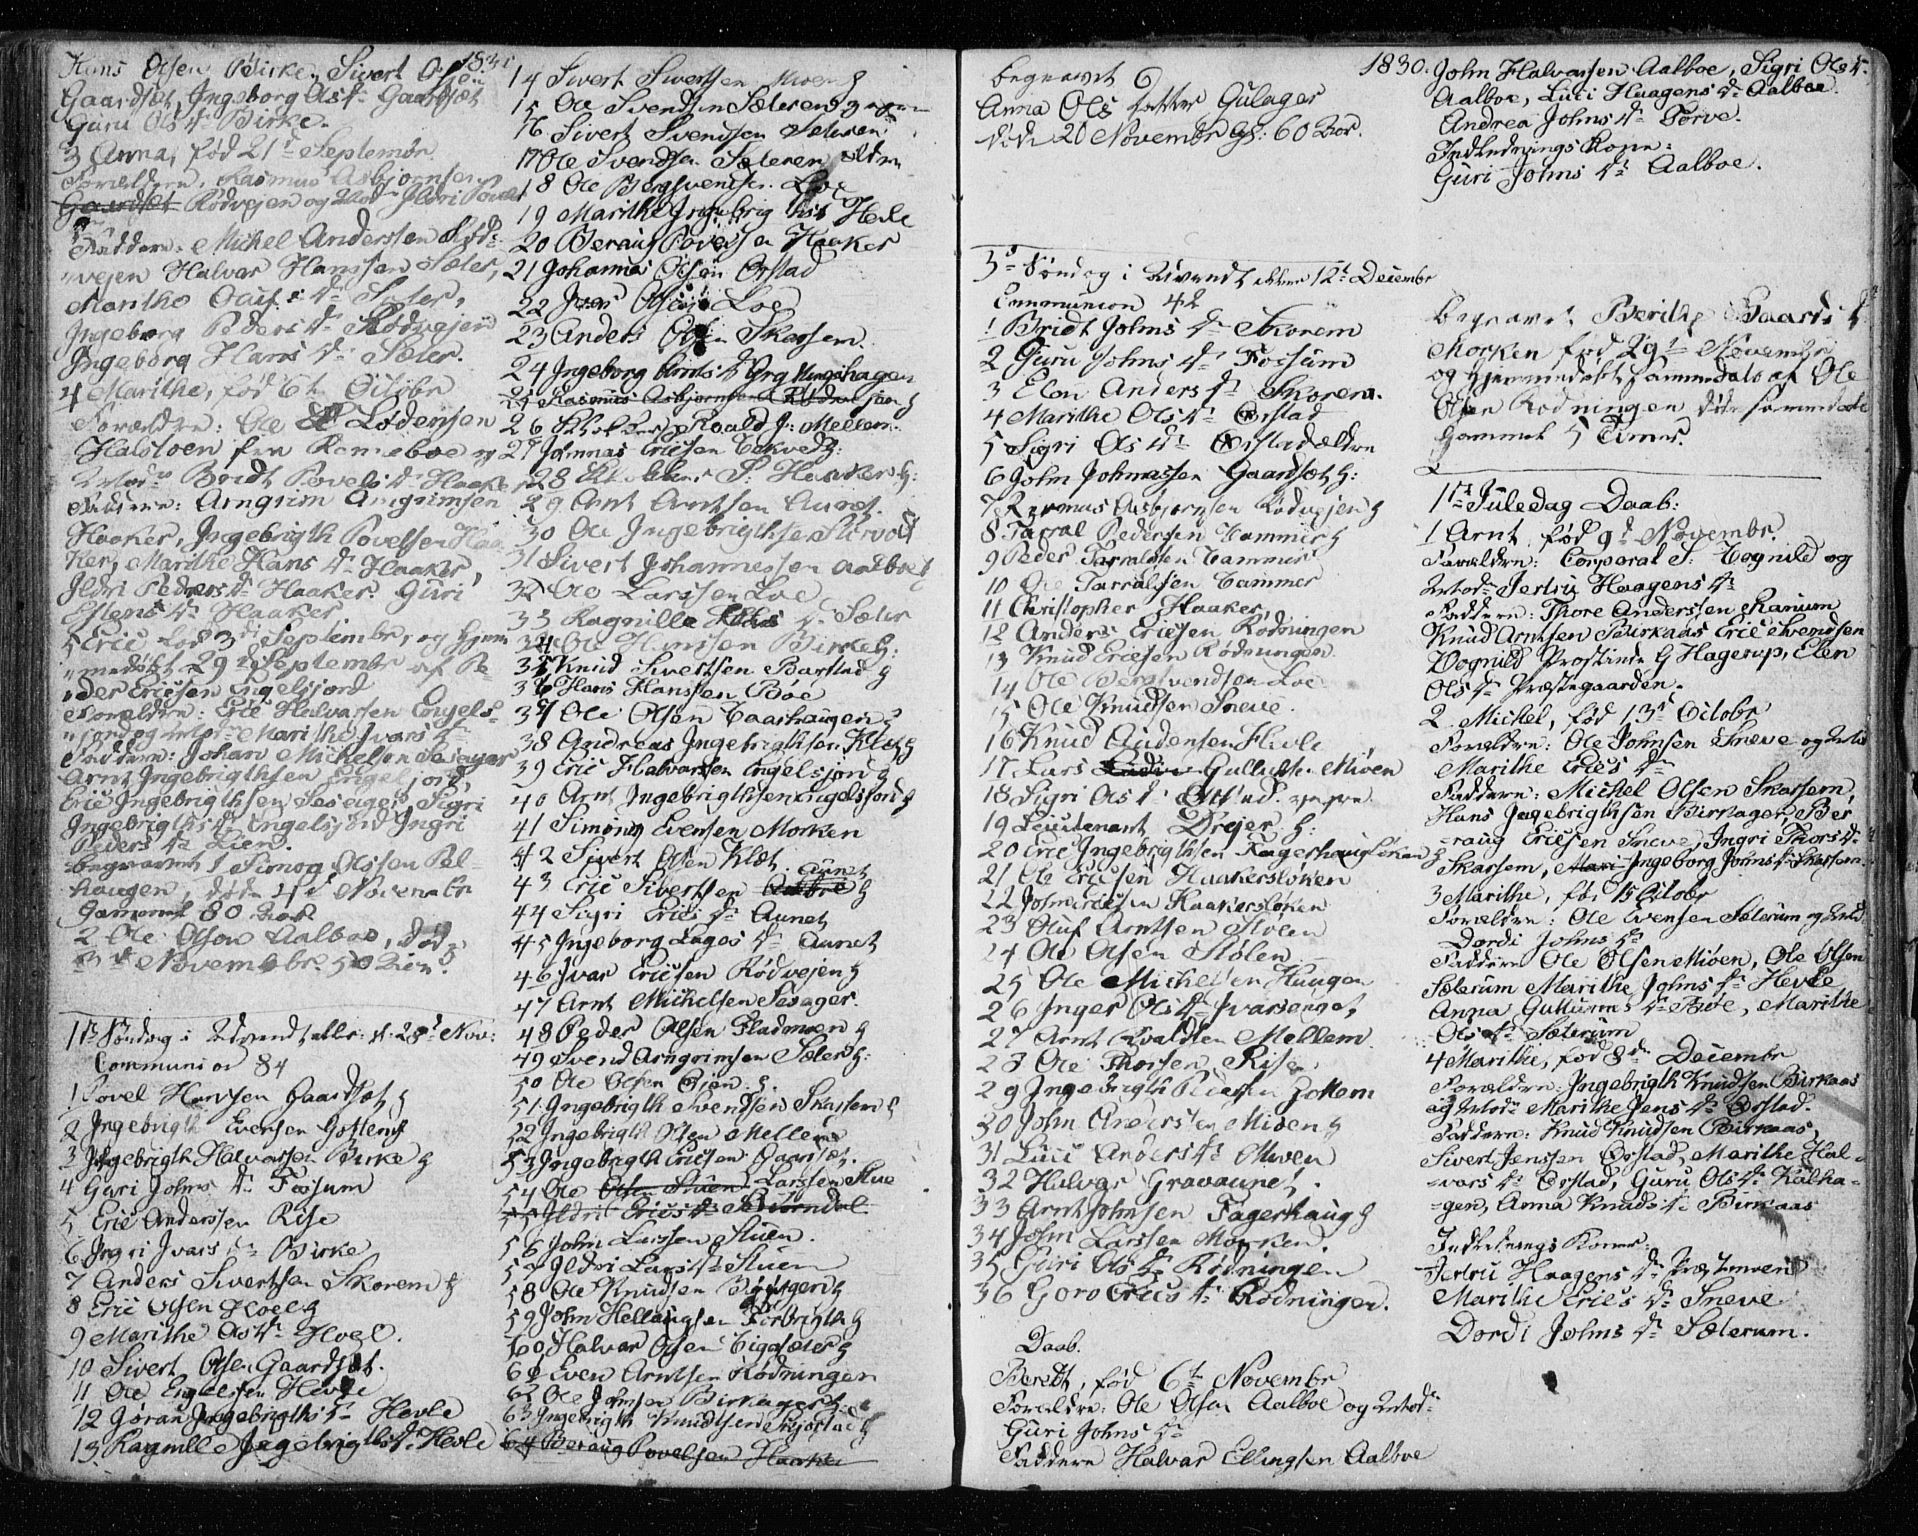 1830
Hans Olsen Birke, Sivert
Gaardsæt, Ingeborg Olsdr Gaardsæt
Guru Olsdr Birke.
3 Anna, fød 21de Septembr.
Forældre, Rasmus Asbjørnsen
Gaardsæt Rødvejen og Mod. Ildri
Faddere: Michel Anderssen Rød-
vejen Halvar Hanssen Sæter,
Marithe dr Sæter,
Ingeborg Pedersdr Rødvejen
Ingeborg Hansdr Sæter.
4 Marithe, fød 6te Octobr
Forældre: Ole
Halstoen fra Renneboe og
Mod. Bridt Povelsdr Haaker
Faddere: Arngrim Arngrimsen
Haaker, Ingebrigth Povelsen Haa-
ker, Marithe Hansdr Haaker,
Ildri Pedersdr Haaker. Guri
Estensdr Haaker
5 Eric fød 3de Septembr, og hjem-
medøbt 29de Septembr af Pe-
der Ericsen Engelsjord
Forældre: Eric Halvarsen Engels-
jord og Mod. Marithe Ivarsdr
Faddere: Johan Michelsen Sesager
Arnt Ingebrigthsen Engelsjord,
Eric Ingebrigthsen Sesager, Sigri
Ingebrigthsdr Engelsjord Ingri
Pedersdr Lien.
begravet 1 Simon Olssen Pel-
haugen, døde 4de Novembr
Gammel 80 Aar
2 Ole Olsen Aalboe, døde
3de Novembr. 50 Aar.
1ste Søndag i Advendt eller d: 28de Nov:
Communion 84
1 Povel Hanssen Gaardsæt g
2 Ingebrigth Evensen Gottem g
3 Ingebrigth Halvarsen Birke g
4 Guri Johnsdr Fossum
5 Eric Anderssen Rise
6 Ingri Ivarsdr Birke
7 Anders Sivertsen Skorem g
8 Eric Olsen Hoel g
9 Marithe Olsdr Hoel.
10 Sivert Olsen Gaardsæt.
11 Ole Engelsen Hevle
12 Gøran Ingebrigthsdr Hevle
13 Ragnille Ingebrigthsdr Hevle
14 Sivert Sivertsen Moen g
15 Ole Svendsen Sæteren yngre
16 Sivert Svendsen Sæteren
17 Ole Svendsen Sæteren ældre
18 Ole Bergsvendsen Loe
19 Marithe Ingebrigthsdr Hevle
20 Beraug Povelsen Haaker
21 Johannes Olsen Ørstad
22 Jens Olsen Loe
23 Anders Olsen Skarsem.
24 Ingeborg Arntsdr Mungshagen
25 Rasmus Asbjørnsen Rødvejen g
26 Roald J: Mellem.
27 Johannes Ericsen Cekvedt g:
28 S: Haaker g:
29 Arnt Arntsen Aunet.
30 Ole Ingebrigthsen Storvold
31 Sivert Johannessen Aalboe g
32 Ole Larssen Loe
33 Ragnille dr Sæter
34 Ole Hanssen Birke g:
35 Knud Sivertsen Barstad g
36 Hans Hanssen Boe
37 Ole Olsen Caashaugen g
38 Andreas Ingebrigthsen Klæt g
39 Eric Halvarsen Engelsjord g
40 Arnt Ingebrigthsen Engelsjord g
41 Simon Evensen Morken
42 Sivert Olsen Klæt
43 Eric Sivertsen Aunet g
44 Sigri Ericsdr Aunet
45 Ingeborg Lagesdr Aunet
46 Ivar Ericsen Rødvejen g
47 Arnt Michelsen Sesager.
48 Peder Olsen Fladmoen g
49 Svend Arngrimsen Sæter g:
50 Ole Olsen Gjøn g.
51 Ingebrigth Svendsen Skarsem g
52 Ingebrigth Olsen Mellem
53 Ingebrigth Ericsen Gaardsæt.
54 Ole Olsen Stuen Larssen Stue
55 Ildri Ericsdr Bjørndal
56 John Larssen Stuen.
57 Ildri Larsdr Stuen
58 Ole Knudsen
59 John Hellaugsen Forbrigth g
60 Halvar Olsen Gigsæter g
61 Even Arntsen Rødningen
62 Ole Johnsen Birkager g:
63 Ingebrigth Knudtsen
64 Beraug Povelsen Haaker
1830.
begravet
Anna Olsdatter Gulager
døde 20 Novembr gl: 60 Aar.
3de Søndag i Advendt eller 12te Decembr
Communion 42
1 Bridt Johnsdr Skorem
2 Guru Johnsdr Fossum
3 Elen Andersdr Skorem.
4 Marithe Olsdr Ørstad
5 Sigri Olsdr Ørstad ældre
6 John Johnassen Gaardsæt g:
7 Rasmus Asbjørnsen Rødvejen g
8 Tarral Pedersen Cammer g
9 Peder Tarralsen Cammer
10 Ole Tarralsen Cammer
11 Christopher Haaker,
12 Anders Ericsen Rødningen
13 Knud Ericsen Rødningen
14 Ole Bergsvendsen Loe
15 Ole Knudsen Sneve.
16 Knud Audensen Hevle
17 Lars Gulliksen Moen
18 Sigri Olsdr Ørstad. yngre.
19 Lieutenant Drejer g:
20 Eric Ingebrigthsen Fagerhaugløken g
21 Ole Ericsen Haakersløken
22 John Ericsen Haakersløken
23 Oluf Arntsen Stølen
24 Ole Olsen Stølen
25 Ole Michelsen Haugen
26 Inger Olsdr Ivarsenget,
27 Arnt Roaldsen Mellem.
28 Ole Thorsen Rise
29 Ingebrigth Zottem
30 John Andersen Misen g
31 Luci Andersdr Moen
32 Halvar Gravaunet.
33 Arnt Johnsen Fagerhaug g
34 John Larssen Morken.
35 Guri Olsdr Rødningen
36 Goro Ericsdr Rødningen.
Daab.
Beredt, fød 6te Novembr
Forældre: Ole Olsen Aalboe og Mod.
Guri Johnsdr
Faddere Halvar Ellingsen Aalboe
John Halvarsen Aalboe, Sigri Olsdr
Aalboe, Luci Haagensdr Aalboe
Andrea Johnsdr Torve.
Indledningskone:
Guri Johnsdr Aalboe.
begravet Berithe
Morken fød 29de Novembr
og hjemmedøbt sammedato af Ole
Olsen Rødningen døde sammedato
gammel 5 Timer.
1ste Juledag Daab:
1 Arnt, fød 9de Novembr
Forældre: Corporal S: Vognild og
Mod. Jertru Haagensdr
Faddere: Thore Anderssen Ranum
Knud Arntsen Birkaas Eric Svendsen
Vognild Provstinde G Hagerup, Elen
Olsdr Præstegaarden.
2 Michel, fød 13de Octobr
Forældre: Ole Johnsen Sneve og Mod.
Marithe Ericsdr
Faddere: Michel Olsen Skarsem,
Hans Ingebrigthsen Birkager, Be-
raug Ericsen Sneve, Ingri Thorsdr
Skarsem, Mari Ingeborg Johnsdr Skarsem.
3 Marithe, fød 15 Octobr
Forældre: Ole Evensen Sæterum og Mod.
Dordi Johnsdr
Faddere Ole Olsen Moen, Ole Olsen
Sæterum Marithe Johnsdr Hevle
Anna Guttormsdr Boe, Marithe
Olsdr Sæterum
4 Marithe, fød 8de Decembr
Forældre: Ingebrigth Knudsen Birkaas
og Mod. Marithe Jensdr Ørstad.
Faddere: Knud Knudsen Birkaas,
Sivert Jenssen Ørstad, Marithe Hal-
varsdr Ørstad, Guru Olsdr Kulha-
gen, Anna Knudsdr Birkaas
Indledningskoner:
Jertru Haagensdr Præstmoen
Marithe Ericsdr Sneve
Dordi Johnsdr Sæterum.